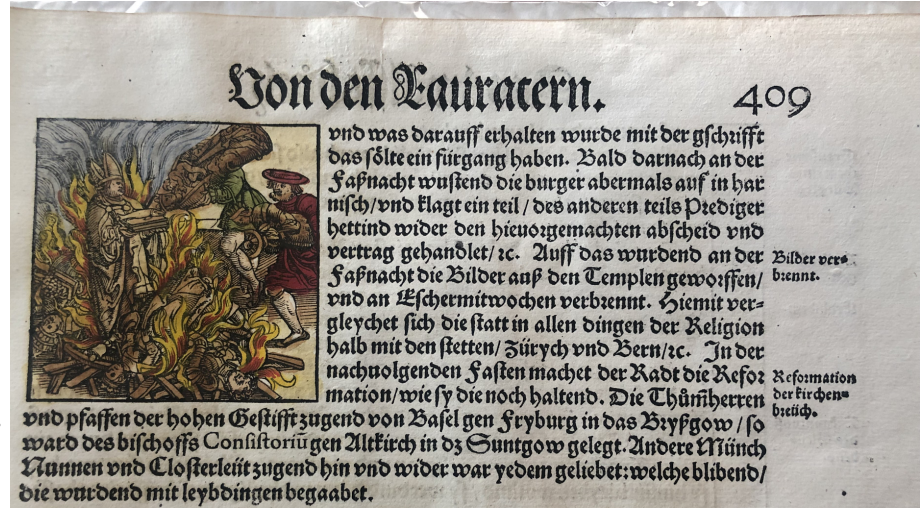 Von den Rauracern. 409
vnd was darauff erhalten wurde mit der gschrifft
das sölte ein fürgang haben. Bald darnach an der
Faßnacht wustend die burger abermals auf in har
nisch/vnd klagt ein teil/des anderen teils Prediger
hettind wider den hieuorgemachten abscheid vnd
vertrag gehandlet/ ꝛc. Auff das wurdend an der
Faßnacht die Bilder auß den Templen geworffen/
vnd an Eschermitwochen verbrennt. Hiemit ver-
gleychet sich die statt in allen dingen der Religion
halb mit den stetten/ Zürych vnd Bern/ꝛc. In der
nachuolgenden Fasten machet der Radt die Refor
mation/wie sy die noch haltend. Die Thůmherren
vnd pfaffen der hohen Gestifft zugend von Basel gen Fryburg in das Bryßgow/so
ward des bischoffs Consistoriū gen Altkirch in dz Suntgow gelegt. Andere Münch
Nunnen vnd Closterleüt zugend hin vnd wider war yedem geliebt: welche blibend/
die wurdend mit leybdingen begaabet.
Bilder ver-
brennt.
Reformation
der kirchen-
breüch.